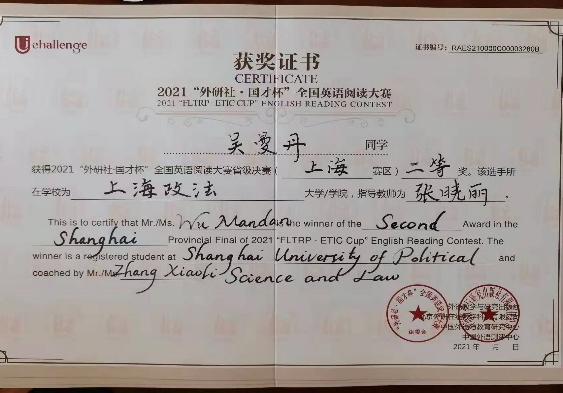 Uchallenge
证书编号: RAES210000C00003280B
获奖证书
CERTIFICATE
2021 “外研社·国才杯” 全国英语阅读大赛
2021 "FLTRP · ETIC CUP" ENGLISH READING CONTEST
吴曼丹 同学
获得2021 “外研社·国才杯” 全国英语阅读大赛省级决赛（上海 赛区）二等 奖。该选手所
在学校为 上海政法 大学/学院，指导教师为 张晓丽.
This is to certify that Mr./Ms. Wu Mandan is the winner of the Second Award in the
Shanghai Provincial Final of 2021 "FLTRP · ETIC Cup" English Reading Contest. The
winner is a registered student at Shanghai University of Political and
coached by Mr./Ms. Zhang Xiaoli Science and Law
中国外语测评中心
2021年 月 日